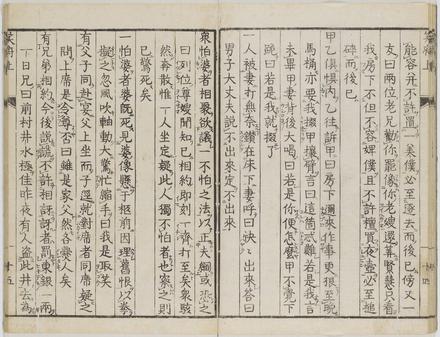 能容弁不許置一美僕必至遣去而後已傍又一
友曰兩位老兄勸你罷像你老嫂還算賢慧只看
我房下不但不容婢僕且不許擅買夜壷必至搥
碎而後已
甲乙俱懼内乙往訴甲曰房下邇來作事更狠至晩
馬桶亦要我掇甲攘臂言曰這箇忒難若是我言
未畢甲妻背後大喝曰若是你便怎麼甲不覺下
跪曰若是我就掇了
一人被妻打無奈鑽在床下妻呼曰快々出來答曰
男子大丈夫説不出來定不出來
衆怕婆者相聚欲議一不怕之法以正夫綱或恐之
曰列位尊嫂聞知已相約即刻一齊打至矣衆駭
然奔散惟一人坐定疑此人獨不怕者也察之則
已驚死矣
一怕婆者婆既死見婆像懸于柩前因理舊恨以拳
擬之忽風吹軸動大驚忙縮手曰我是取笑
有父子同赴宴父上坐而子遜就對席者同席疑之
問上席是令尊否曰雖是家父然各爨人矣
有兄弟相約今後説謊不許相訝訝者罰東銀一兩
一日兄曰前村井水極佳昨夜有人盜此井去為
十五